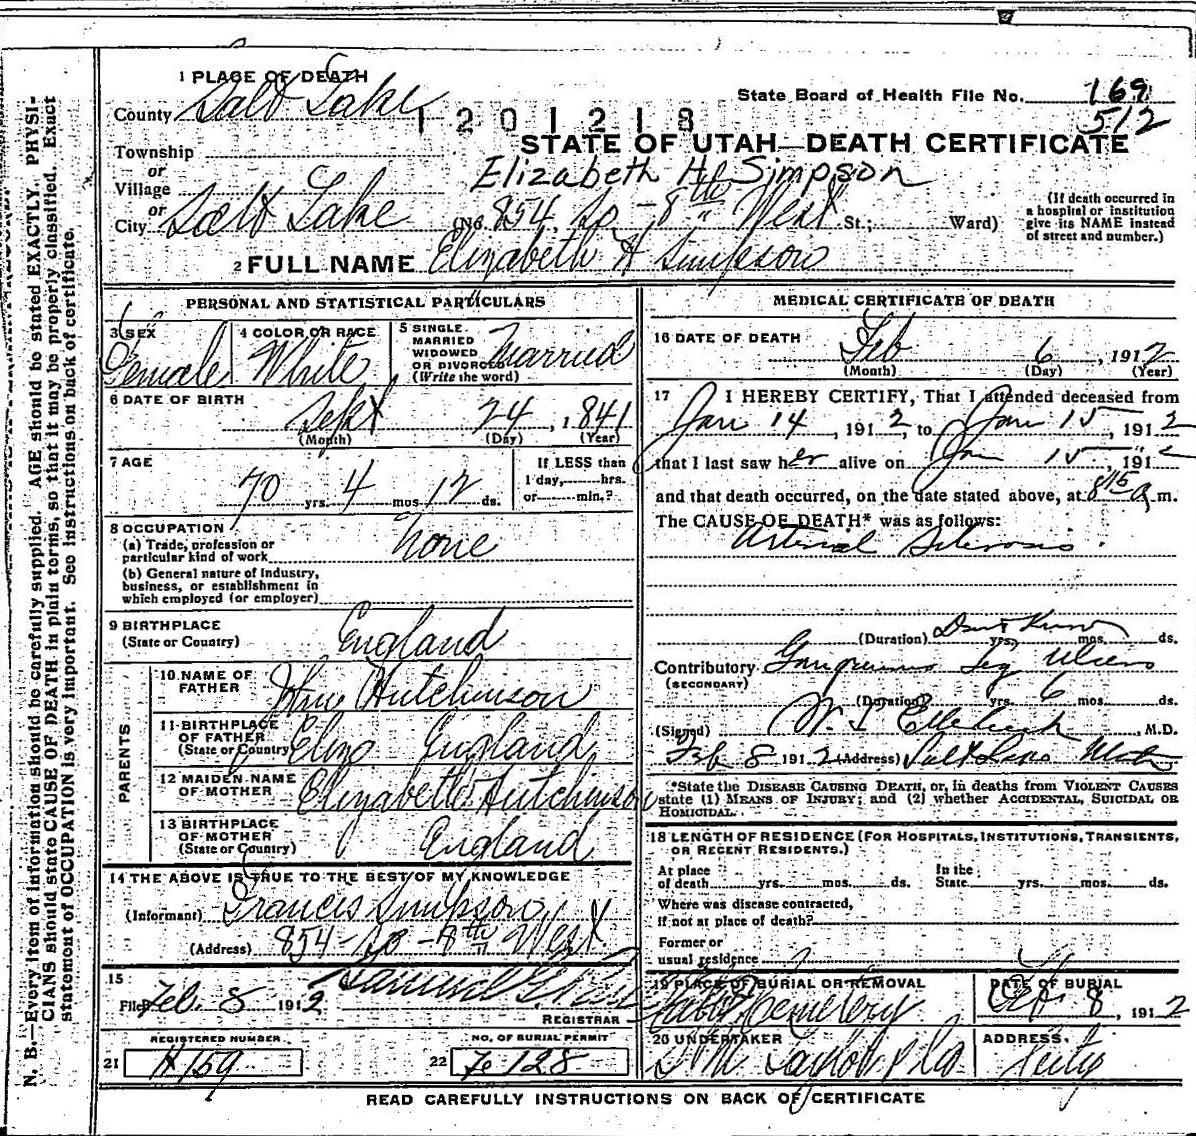 1 PLACE OF DEATH
County Salt Lake
State Board of Health File No. 169
512
1201213
STATE OF UTAH—DEATH CERTIFICATE
Township
or
Village
or
City Salt Lake
Elizabeth H Simpson
(No. 854 So - 8th West St.; Ward)
(If death occurred in
a hospital or institution
give its NAME instead
of street and number.)
2 FULL NAME Elizabeth H Simpson
PERSONAL AND STATISTICAL PARTICULARS
3 SEX
Female
4 COLOR OR RACE
White
5 SINGLE
MARRIED
WIDOWED
OR DIVORCED
(Write the word)
Married
6 DATE OF BIRTH
Sept 24, 1841
(Month) (Day) (Year)
7 AGE
70 yrs. 4 mos 12 ds.
If LESS than
1 day, hrs.
or min.?
8 OCCUPATION
(a) Trade, profession or
particular kind of work None
(b) General nature of industry,
business, or establishment in
which employed (or employer)
9 BIRTHPLACE
(State or Country)
England
PARENTS
10 NAME OF
FATHER
Hutchinson
11 BIRTHPLACE
OF FATHER
(State or Country)
England
12 MAIDEN NAME
OF MOTHER
Elizabeth Hutchinson
13 BIRTHPLACE
OF MOTHER
(State or Country)
England
14 THE ABOVE IS TRUE TO THE BEST OF MY KNOWLEDGE
(Informant) Francis Simpson
(Address) 854 - So - 8th West
15
Filed Feb. 8 1912
REGISTRAR
REGISTERED NUMBER
21 H159
NO. OF BURIAL PERMIT
22 128
MEDICAL CERTIFICATE OF DEATH
16 DATE OF DEATH
Feb 6, 1912
(Month) (Day) (Year)
17 I HEREBY CERTIFY, That I attended deceased from
Jan 14, 1912, to Jan 15, 1912
that I last saw her alive on Jan 15, 191
and that death occurred, on the date stated above, at 815 a m.
The CAUSE OF DEATH* was as follows:
Arterial Sclerosis.
(Duration) Dont Know yrs. mos. ds.
Contributory Gangrenous Leg Ulcers
(SECONDARY)
(Duration) yrs. 6 mos. ds.
(Signed) , M.D.
Feb 8 1912 (Address)
*State the DISEASE CAUSING DEATH, or, in deaths from VIOLENT CAUSES
state (1) MEANS OF INJURY; and (2) whether ACCIDENTAL, SUICIDAL OR
HOMICIDAL.
18 LENGTH OF RESIDENCE (FOR HOSPITALS, INSTITUTIONS, TRANSIENTS,
OR RECENT RESIDENTS.)
At place
of death yrs. mos. ds.
In the
State yrs. mos. ds.
Where was disease contracted,
if not at place of death?
Former or
usual residence
19 PLACE OF BURIAL OR REMOVAL
Cemetery
DATE OF BURIAL
Feb 8, 1912
20 UNDERTAKER
Taylor
ADDRESS.
City
READ CAREFULLY INSTRUCTIONS ON BACK OF CERTIFICATE
N. B.—Every item of information should be carefully supplied. AGE should be stated EXACTLY. PHYSI-
CIANS should state CAUSE OF DEATH in plain terms, so that it may be properly classified. Exact
statement of OCCUPATION is very important. See instructions on back of certificate.